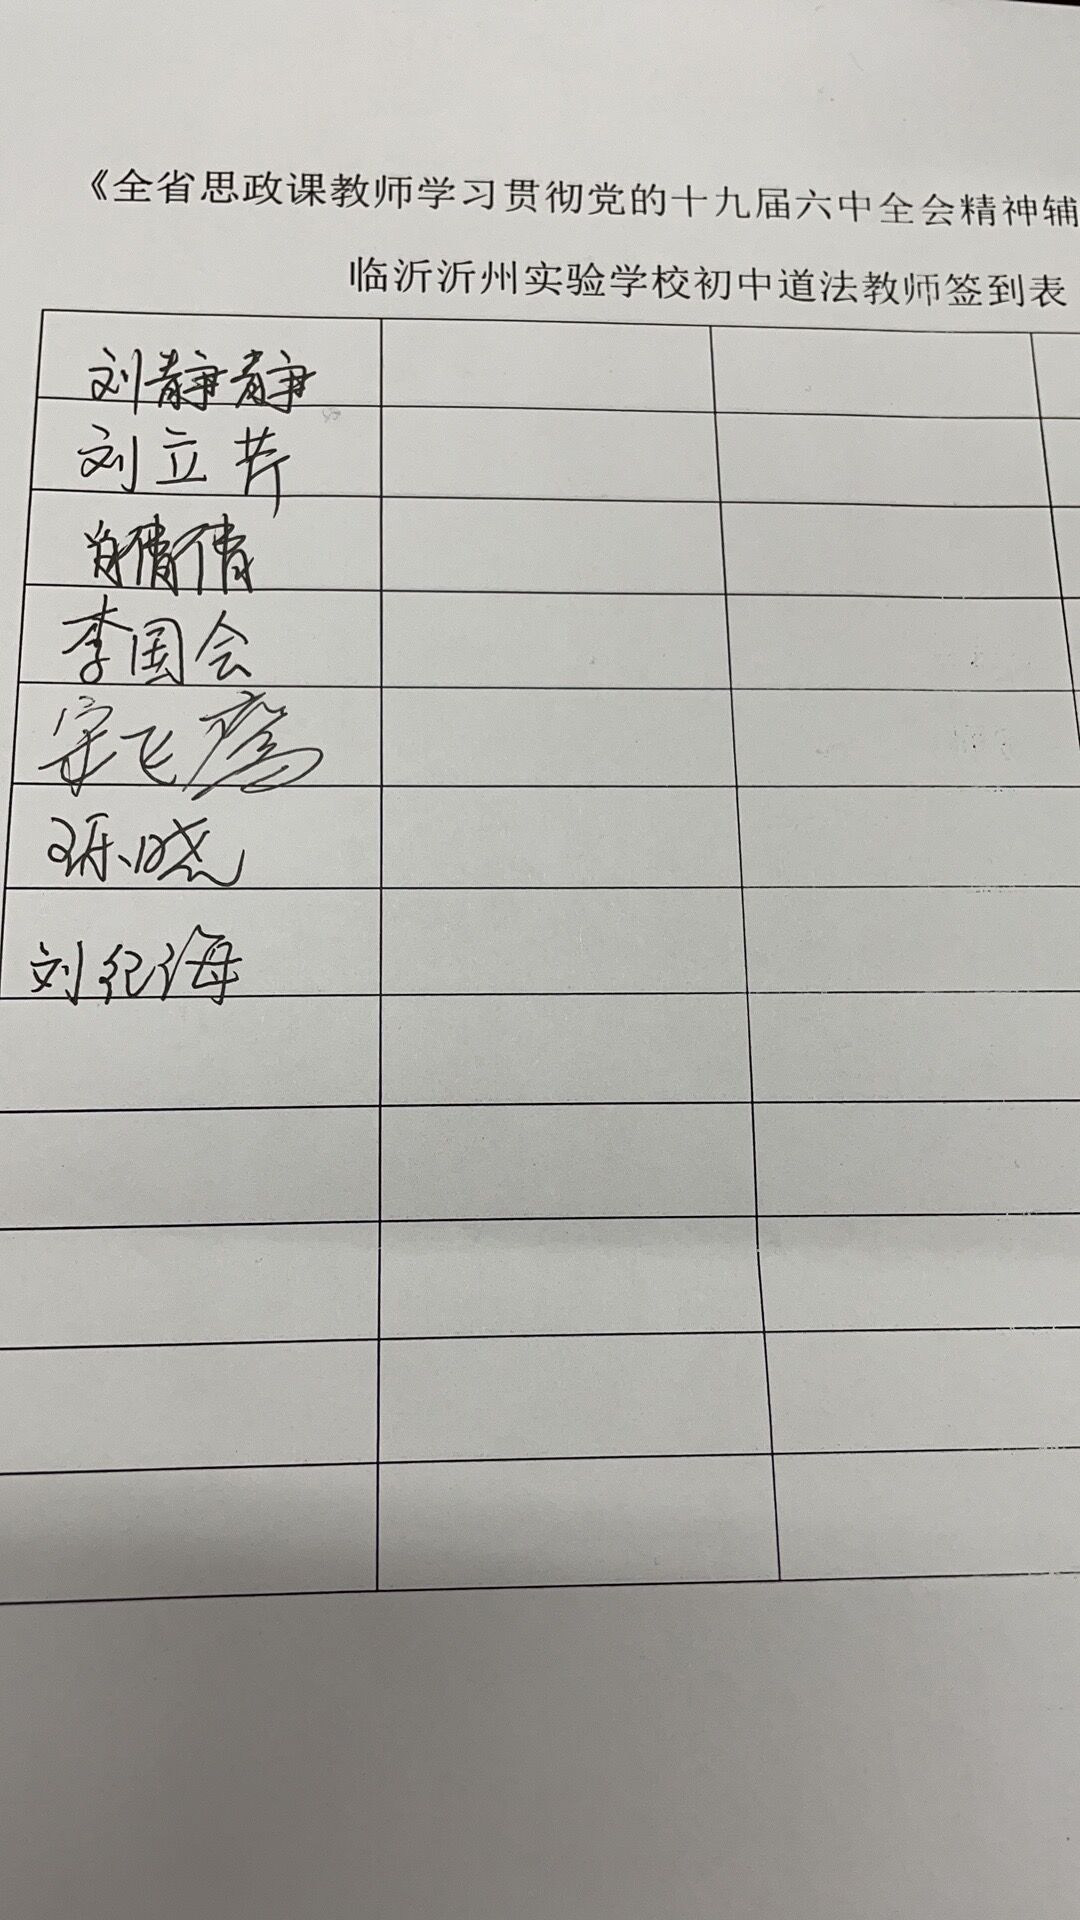 《全省思政课教师学习贯彻党的十九届六中全会精神辅
临沂沂州实验学校初中道法教师签到表
刘静静
刘立芹
肖倩倩
李国会
宋飞
晓
刘纪海